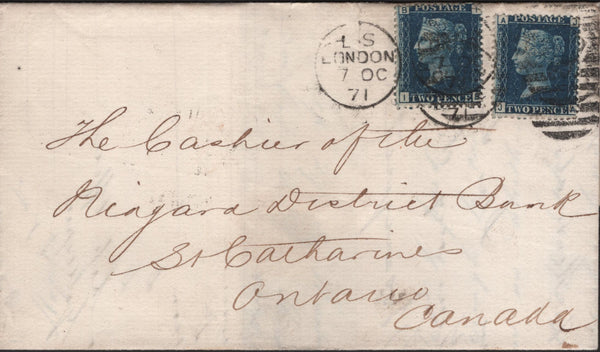 L S
LONDON
7 OC
71
POSTAGE
TWO PENCE
POSTAGE
TWO PENCE
The Cashier of the
Niagara District Bank
St Catharines
Ontario
Canada